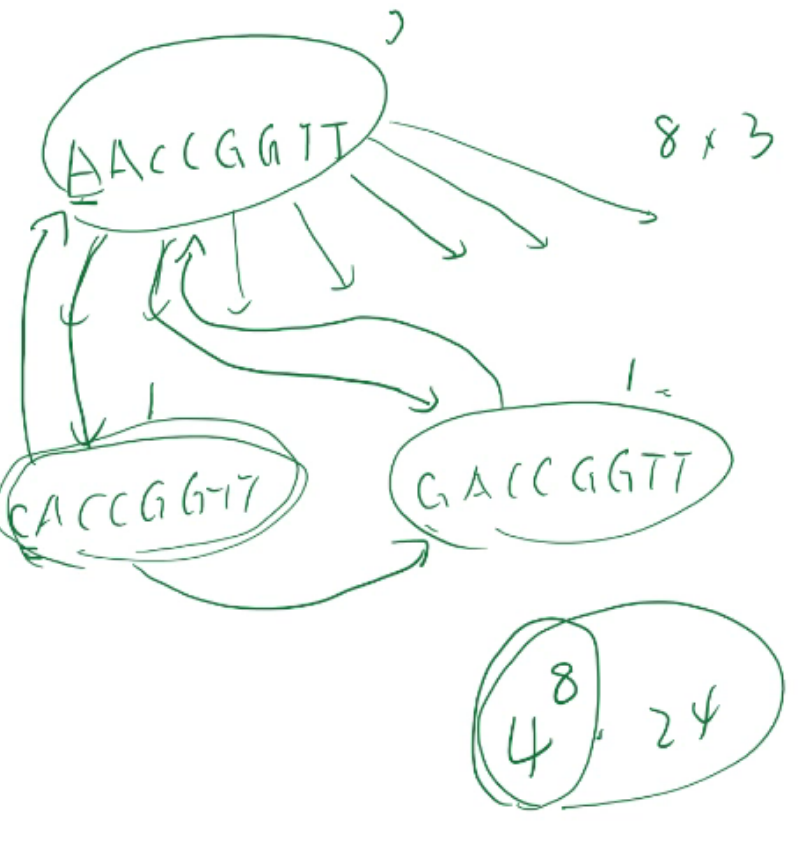 AACCGGTT
8 x 3
1
1
CACCGGTT
GACCGGTT
4^8 . 24